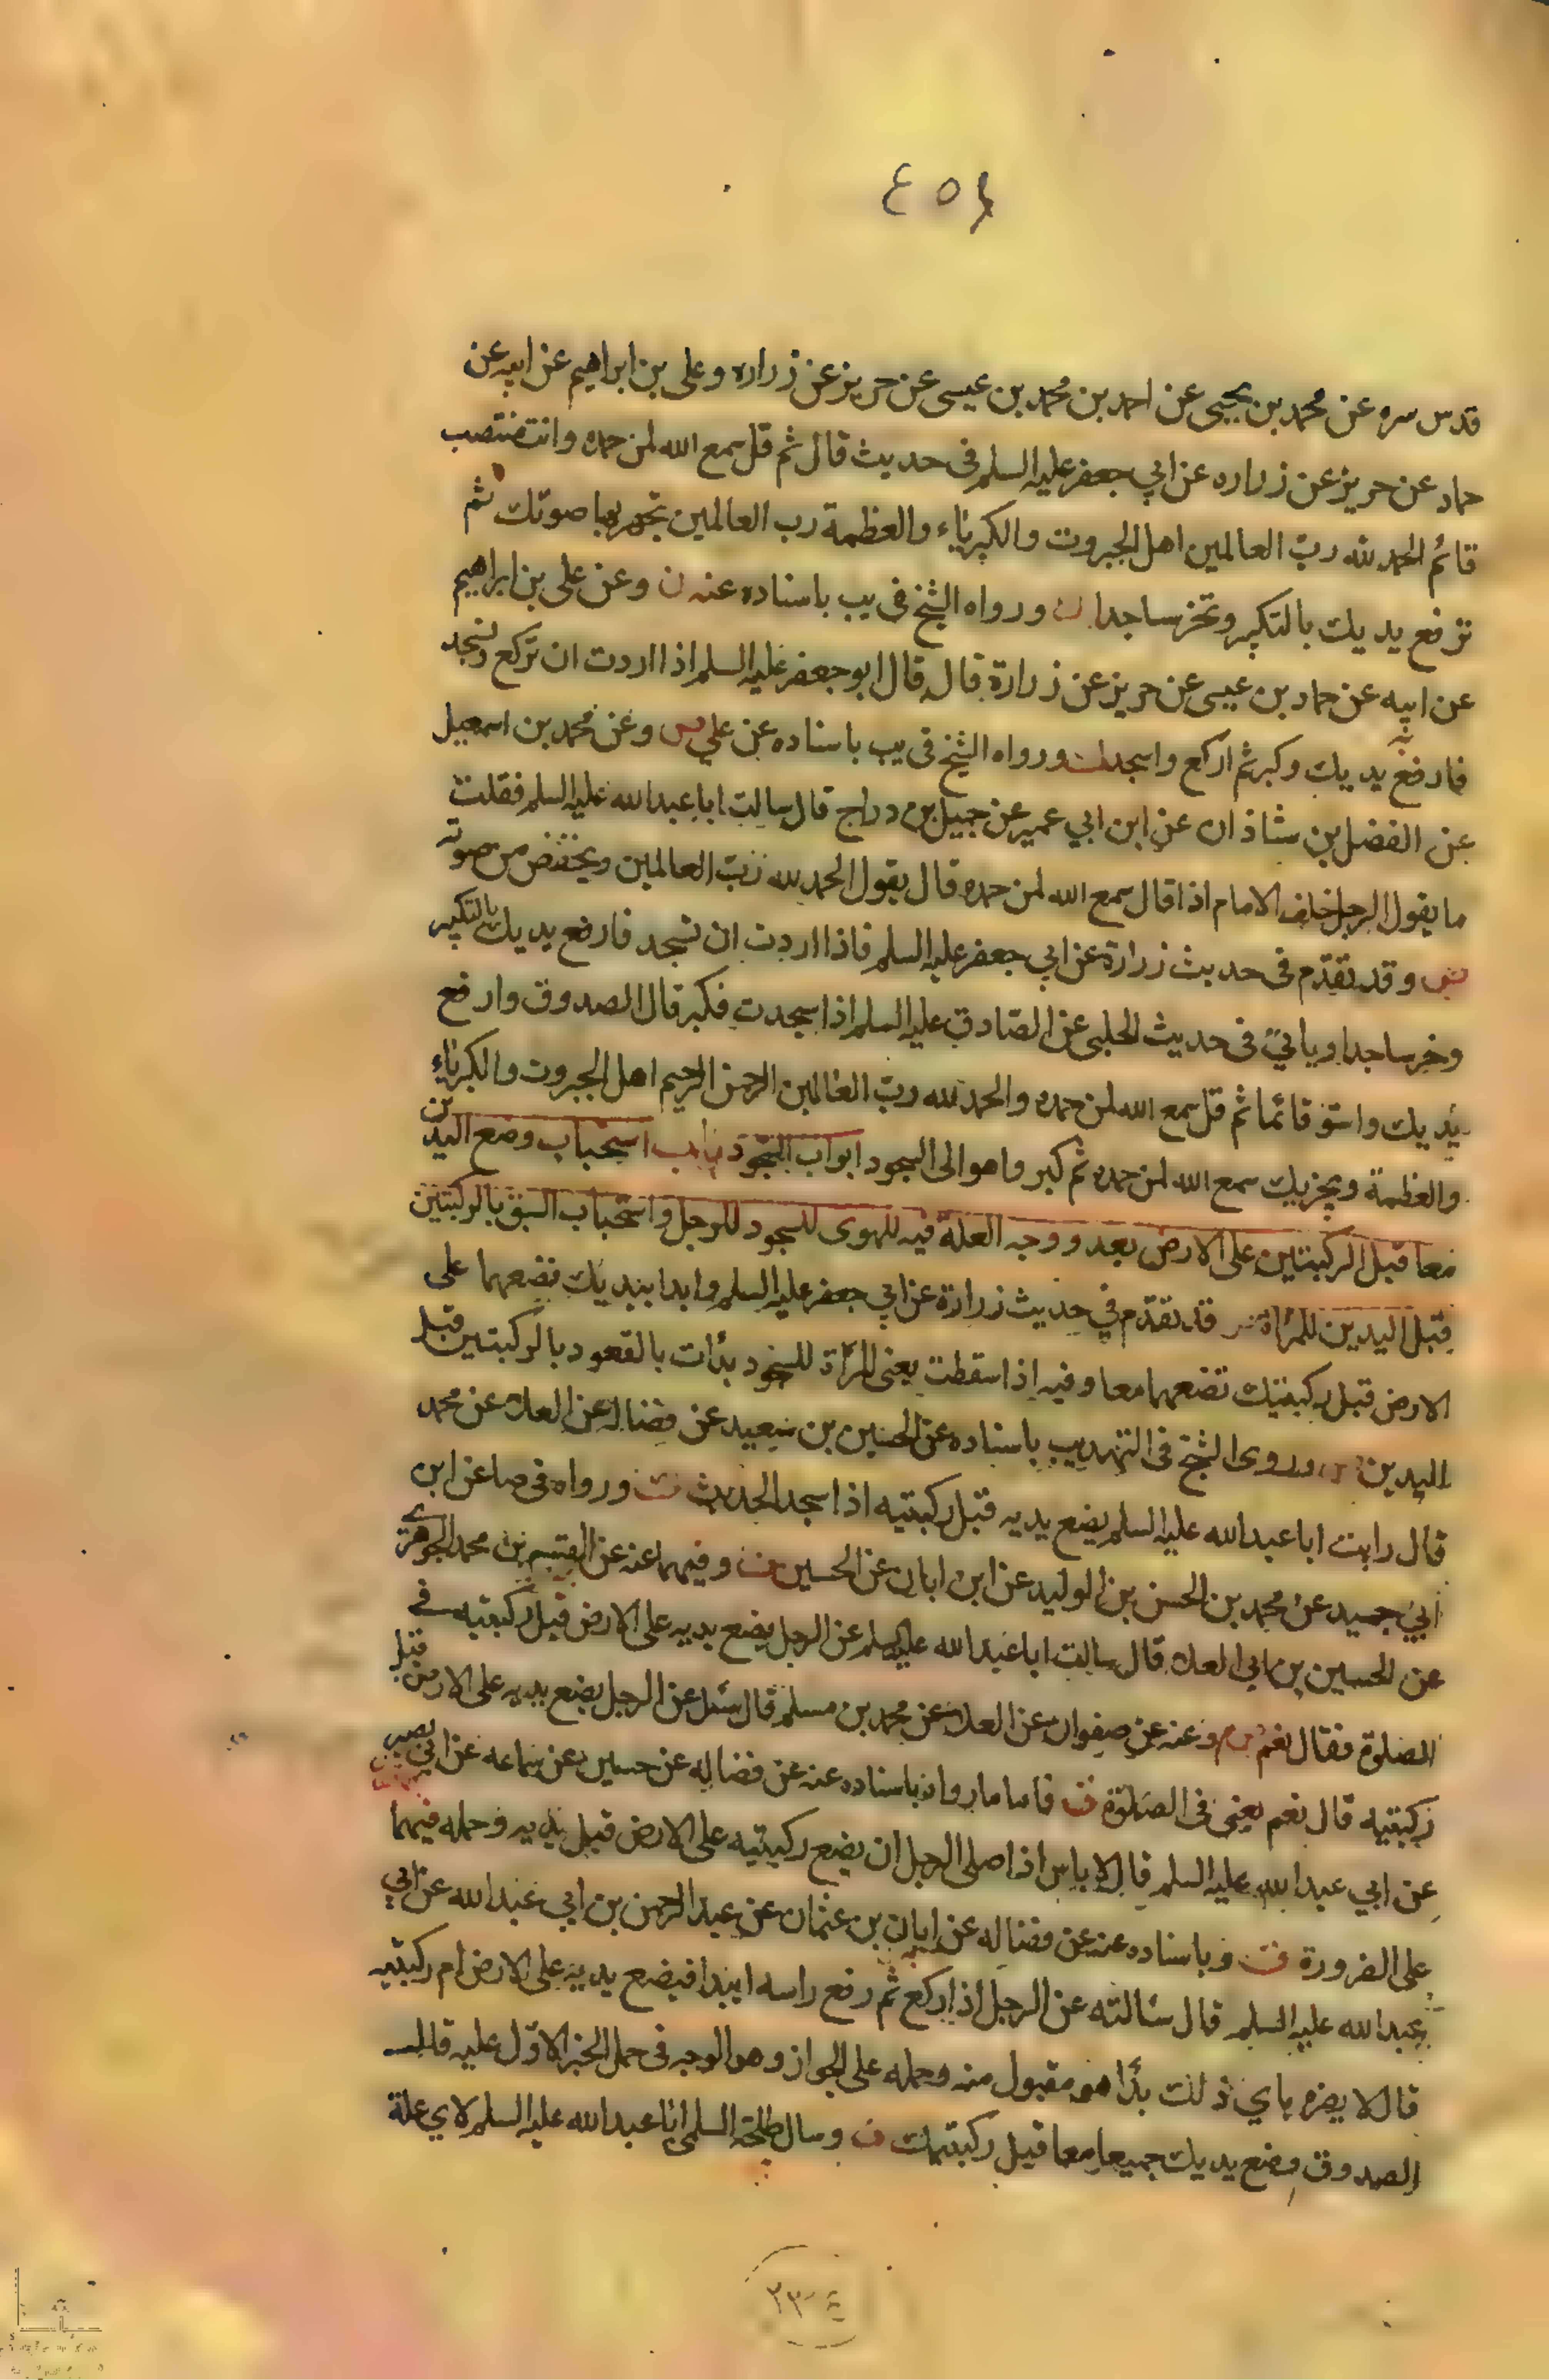 ٤٥٤
قدس سره عن محمد بن يحيى عن احمد بن محمد بن عيسى عن حريز عن زراره وعلى بن ابراهيم عن ابيه عن
حماد عن حريز عن زراره عن ابي جعفر عليه السلم فى حديث قال ثم قل سمع الله لمن حمده وانت منتصب
قائم الحمد لله ربّ العالمين اهل الجبروت والكبرياء والعظمة رب العالمين تجهر بها صوتك ثم
ترفع يديك بالتكبير وتخر ساجدا ورواه الشيخ فى يب باسناده عنه ن وعن على بن ابراهيم
عن ابيه عن حماد بن عيسى عن حريز عن زرارة قال قال ابو جعفر عليه السلم اذا اردت ان تركع وتسجد
فارفع يديك وكبر ثم اركع واسجد ورواه الشيخ فى يب باسناده عن علي وعن محمد بن اسمعيل
عن الفضل بن شاذان عن ابن ابي عمير عن جميل بن دراج قال سالت ابا عبد الله عليه السلم فقلت
ما يقول الرجل خلف الامام اذا قال سمع الله لمن حمده قال يقول الحمد لله ربّ العالمين ويخفض من صوته
وقد تقدّم فى حديث زرارة عن ابي جعفر عليه السلم فاذا اردت ان تسجد فارفع يديك بالتكبير
وخر ساجدا وياتي فى حديث الحلبى عن الصّادق عليه السلم اذا سجدت فكبر قال الصدوق وارفع
يديك واستو قائما ثم قل سمع الله لمن حمده والحمد لله ربّ العالمين الرحمن الرحيم اهل الجبروت والكبرياء
والعظمة ويجزيك سمع الله لمن حمده ثم كبر واهو الى السجود ابواب السّجود باب استحباب وضع اليدين
معا قبل الركبتين على الارض بعد ووجه العلة فيه للهوى للسجود للرجل واستحباب السّبق بالركبتين
قبل اليدين للمراة قد تقدّم في حديث زرارة عن ابي جعفر عليه السلم وابدا بيديك فضعهما على
الارض قبل ركبتيك تضعهما معا وفيه اذا سقطت يعنى المرأة للسجود بدأت بالقعود بالركبتين قبل
اليدين وروى الشيخ فى التهذيب باسناده عن الحسين بن سعيد عن فضاله عن العلاء عن محمد
قال رايت ابا عبد الله عليه السلم يضع يديه قبل ركبتيه اذا سجد الحديث ورواه فى صا عن ابن
ابي جيد عن محمد بن الحسن بن الوليد عن ابن ابان عن الحسين وفيهما عنه عن القسم بن محمد الجوهرى
عن الحسين بن ابى العلاء قال سالت ابا عبد الله عليه السلم عن الرجل يضع يديه على الارض قبل ركبتيه فى
الصلوة فقال نعم وعنه عن صفوان عن العلاء عن محمد بن مسلم قال سئل عن الرجل يضع يديه على الارض قبل
ركبتيه قال نعم يعنى فى الصلوة فاما ما رواه باسناده عنه عن فضاله عن حسين عن سماعه عن ابي بصير
عن ابي عبد الله عليه السلم قال لا باس اذا صلى الرجل ان يضع ركبتيه على الارض قبل يديه وحمله فيهما
على الضرورة وباسناده عنه عن فضاله عن ابان بن عثمان عن عبد الرحمن بن ابي عبد الله عن ابي
عبد الله عليه السلم قال سالته عن الرجل اذا ركع ثم رفع راسه ايبدا فيضع يديه على الارض ام ركبتيه
قال لا يضره باي ذلك بدأ هو مقبول منه وحمله على الجواز وهو الوجه فى حمل الخبر الاوّل عليه قال
الصدوق وضع يديك جميعا معا قبل ركبتيك وسال طلحة السلمي ابا عبد الله عليه السلم لاي علة